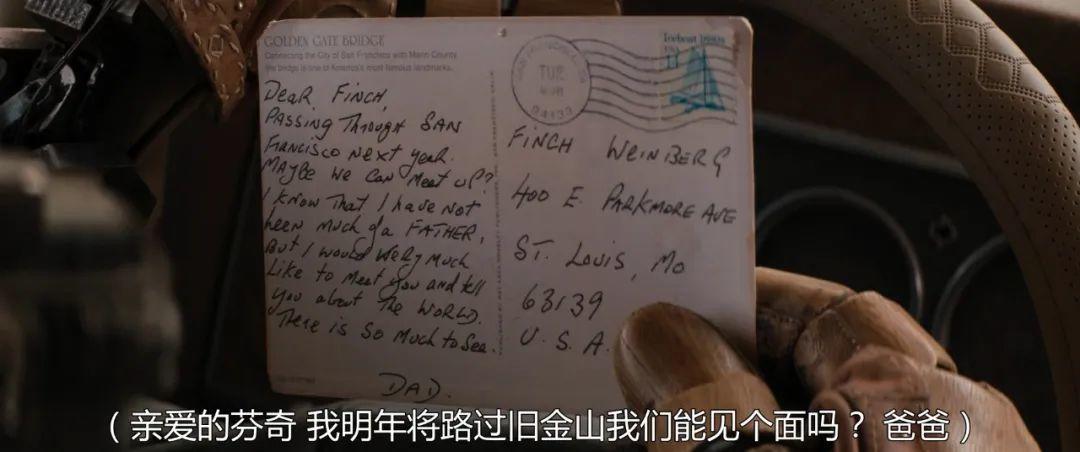 GOLDEN GATE BRIDGE
Connecting the City of San Francisco with Marin County
the bridge is one of America's most famous landmarks.
DEAR FINCH,
PASSING THROUGH SAN
FRANCISCO NEXT YEAR.
MAYBE WE CAN MEET UP?
I KNOW THAT I HAVE NOT
been MUCH of a FATHER,
But I would VERY MUCH
LIKE TO MEET YOU AND tell
YOU about THE WORLD.
THERE IS SO MUCH TO SEE.
DAD.
TUE
94133
Iceboat
USA
FINCH WEINBERG
400 E. PARKMORE AVE
ST. LOUIS, MO
63139
U.S.A.
(亲爱的芬奇 我明年将路过旧金山我们能见个面吗? 爸爸)